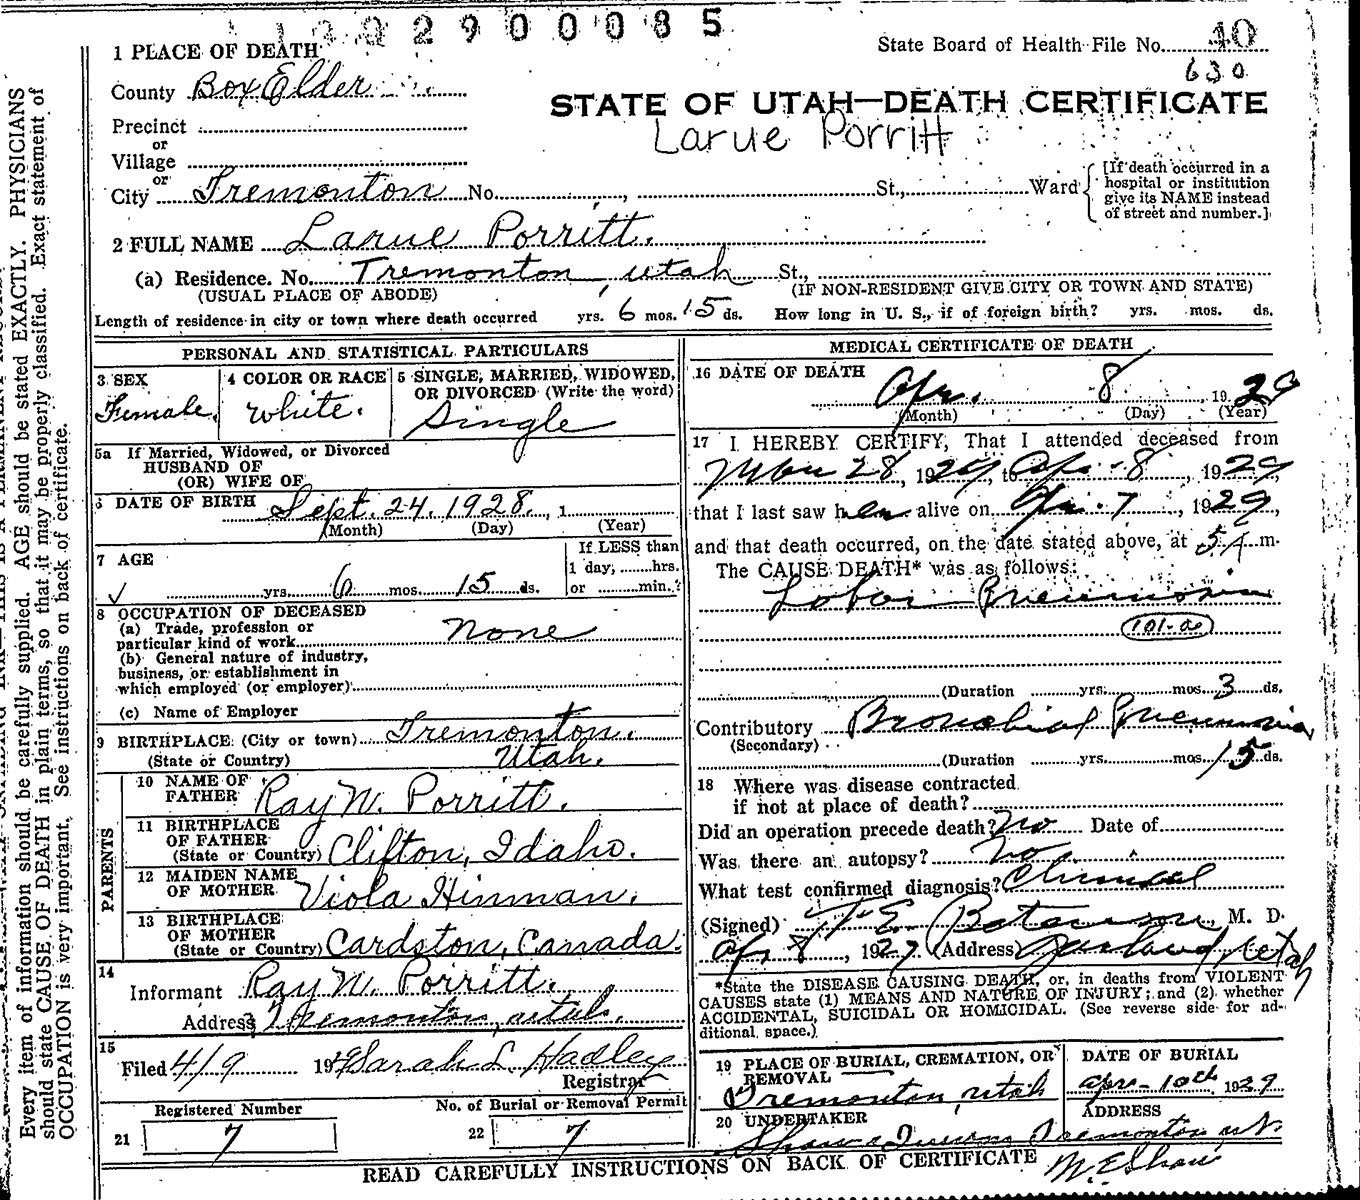 1 9 2 9 0 0 0 8 5
1 PLACE OF DEATH
State Board of Health File No. 40
630
County Box Elder
STATE OF UTAH—DEATH CERTIFICATE
Larue Porritt
Precinct
or
Village
or
City Tremonton No. , St., Ward
[If death occurred in a
hospital or institution
give its NAME instead
of street and number.]
2 FULL NAME Larue Porritt.
(a) Residence. No. Tremonton, Utah St.,
(USUAL PLACE OF ABODE) (IF NON-RESIDENT GIVE CITY OR TOWN AND STATE)
Length of residence in city or town where death occurred yrs. 6 mos. 15 ds. How long in U. S., if of foreign birth? yrs. mos. ds.
PERSONAL AND STATISTICAL PARTICULARS
3 SEX
Female.
4 COLOR OR RACE
White.
5 SINGLE, MARRIED, WIDOWED,
OR DIVORCED (Write the word)
Single
5a If Married, Widowed, or Divorced
HUSBAND OF
(OR) WIFE OF
6 DATE OF BIRTH Sept. 24. 1928. , 1
(Month) (Day) (Year)
7 AGE
yrs. 6 mos. 15 ds.
If LESS than
1 day, hrs.
or min.?
8 OCCUPATION OF DECEASED
(a) Trade, profession or
particular kind of work None
(b) General nature of industry,
business, or establishment in
which employed (or employer)
(c) Name of Employer
9 BIRTHPLACE (City or town) Tremonton.
(State or Country) Utah.
PARENTS
10 NAME OF
FATHER Ray W. Porritt.
11 BIRTHPLACE
OF FATHER
(State or Country) Clifton, Idaho.
12 MAIDEN NAME
OF MOTHER Viola Hinman.
13 BIRTHPLACE
OF MOTHER
(State or Country) Cardston, Canada.
14
Informant Ray W. Porritt.
Address Tremonton, Utah.
15
Filed 4/9 19 Sarah L. Hadley
Registrar
Registered Number
No. of Burial or Removal Permit
21 7
22 7
MEDICAL CERTIFICATE OF DEATH
16 DATE OF DEATH
Apr. 8 , 19 29
(Month) (Day) (Year)
17 I HEREBY CERTIFY, That I attended deceased from
Mar 28, 1929, to Apr. 8, 1929
that I last saw her alive on Apr. 7, 1929,
and that death occurred, on the date stated above, at 5 A m.
The CAUSE DEATH* was as follows:
Lobar Pneumonia
101-a
(Duration yrs. mos. 3 ds.
Contributory Bronchial Pneumonia
(Secondary)
(Duration yrs. mos. 15 ds.
18 Where was disease contracted
if not at place of death?
Did an operation precede death? No Date of
Was there an autopsy? No
What test confirmed diagnosis? Clinical
(Signed) M. D.
Apr 8, 1929 (Address) Garland, Utah
*State the DISEASE CAUSING DEATH, or, in deaths from VIOLENT
CAUSES state (1) MEANS AND NATURE OF INJURY; and (2) whether
ACCIDENTAL, SUICIDAL OR HOMICIDAL. (See reverse side for ad-
ditional space.)
19 PLACE OF BURIAL, CREMATION, OR
REMOVAL
Tremonton, Utah
DATE OF BURIAL
Apr-10th 1929
20 UNDERTAKER
ADDRESS
Tremonton Ut.
M. E. Shaw
READ CAREFULLY INSTRUCTIONS ON BACK OF CERTIFICATE
Every item of information should be carefully supplied. AGE should be stated EXACTLY. PHYSICIANS
should state CAUSE OF DEATH in plain terms, so that it may be properly classified. Exact statement of
OCCUPATION is very important. See instructions on back of certificate.